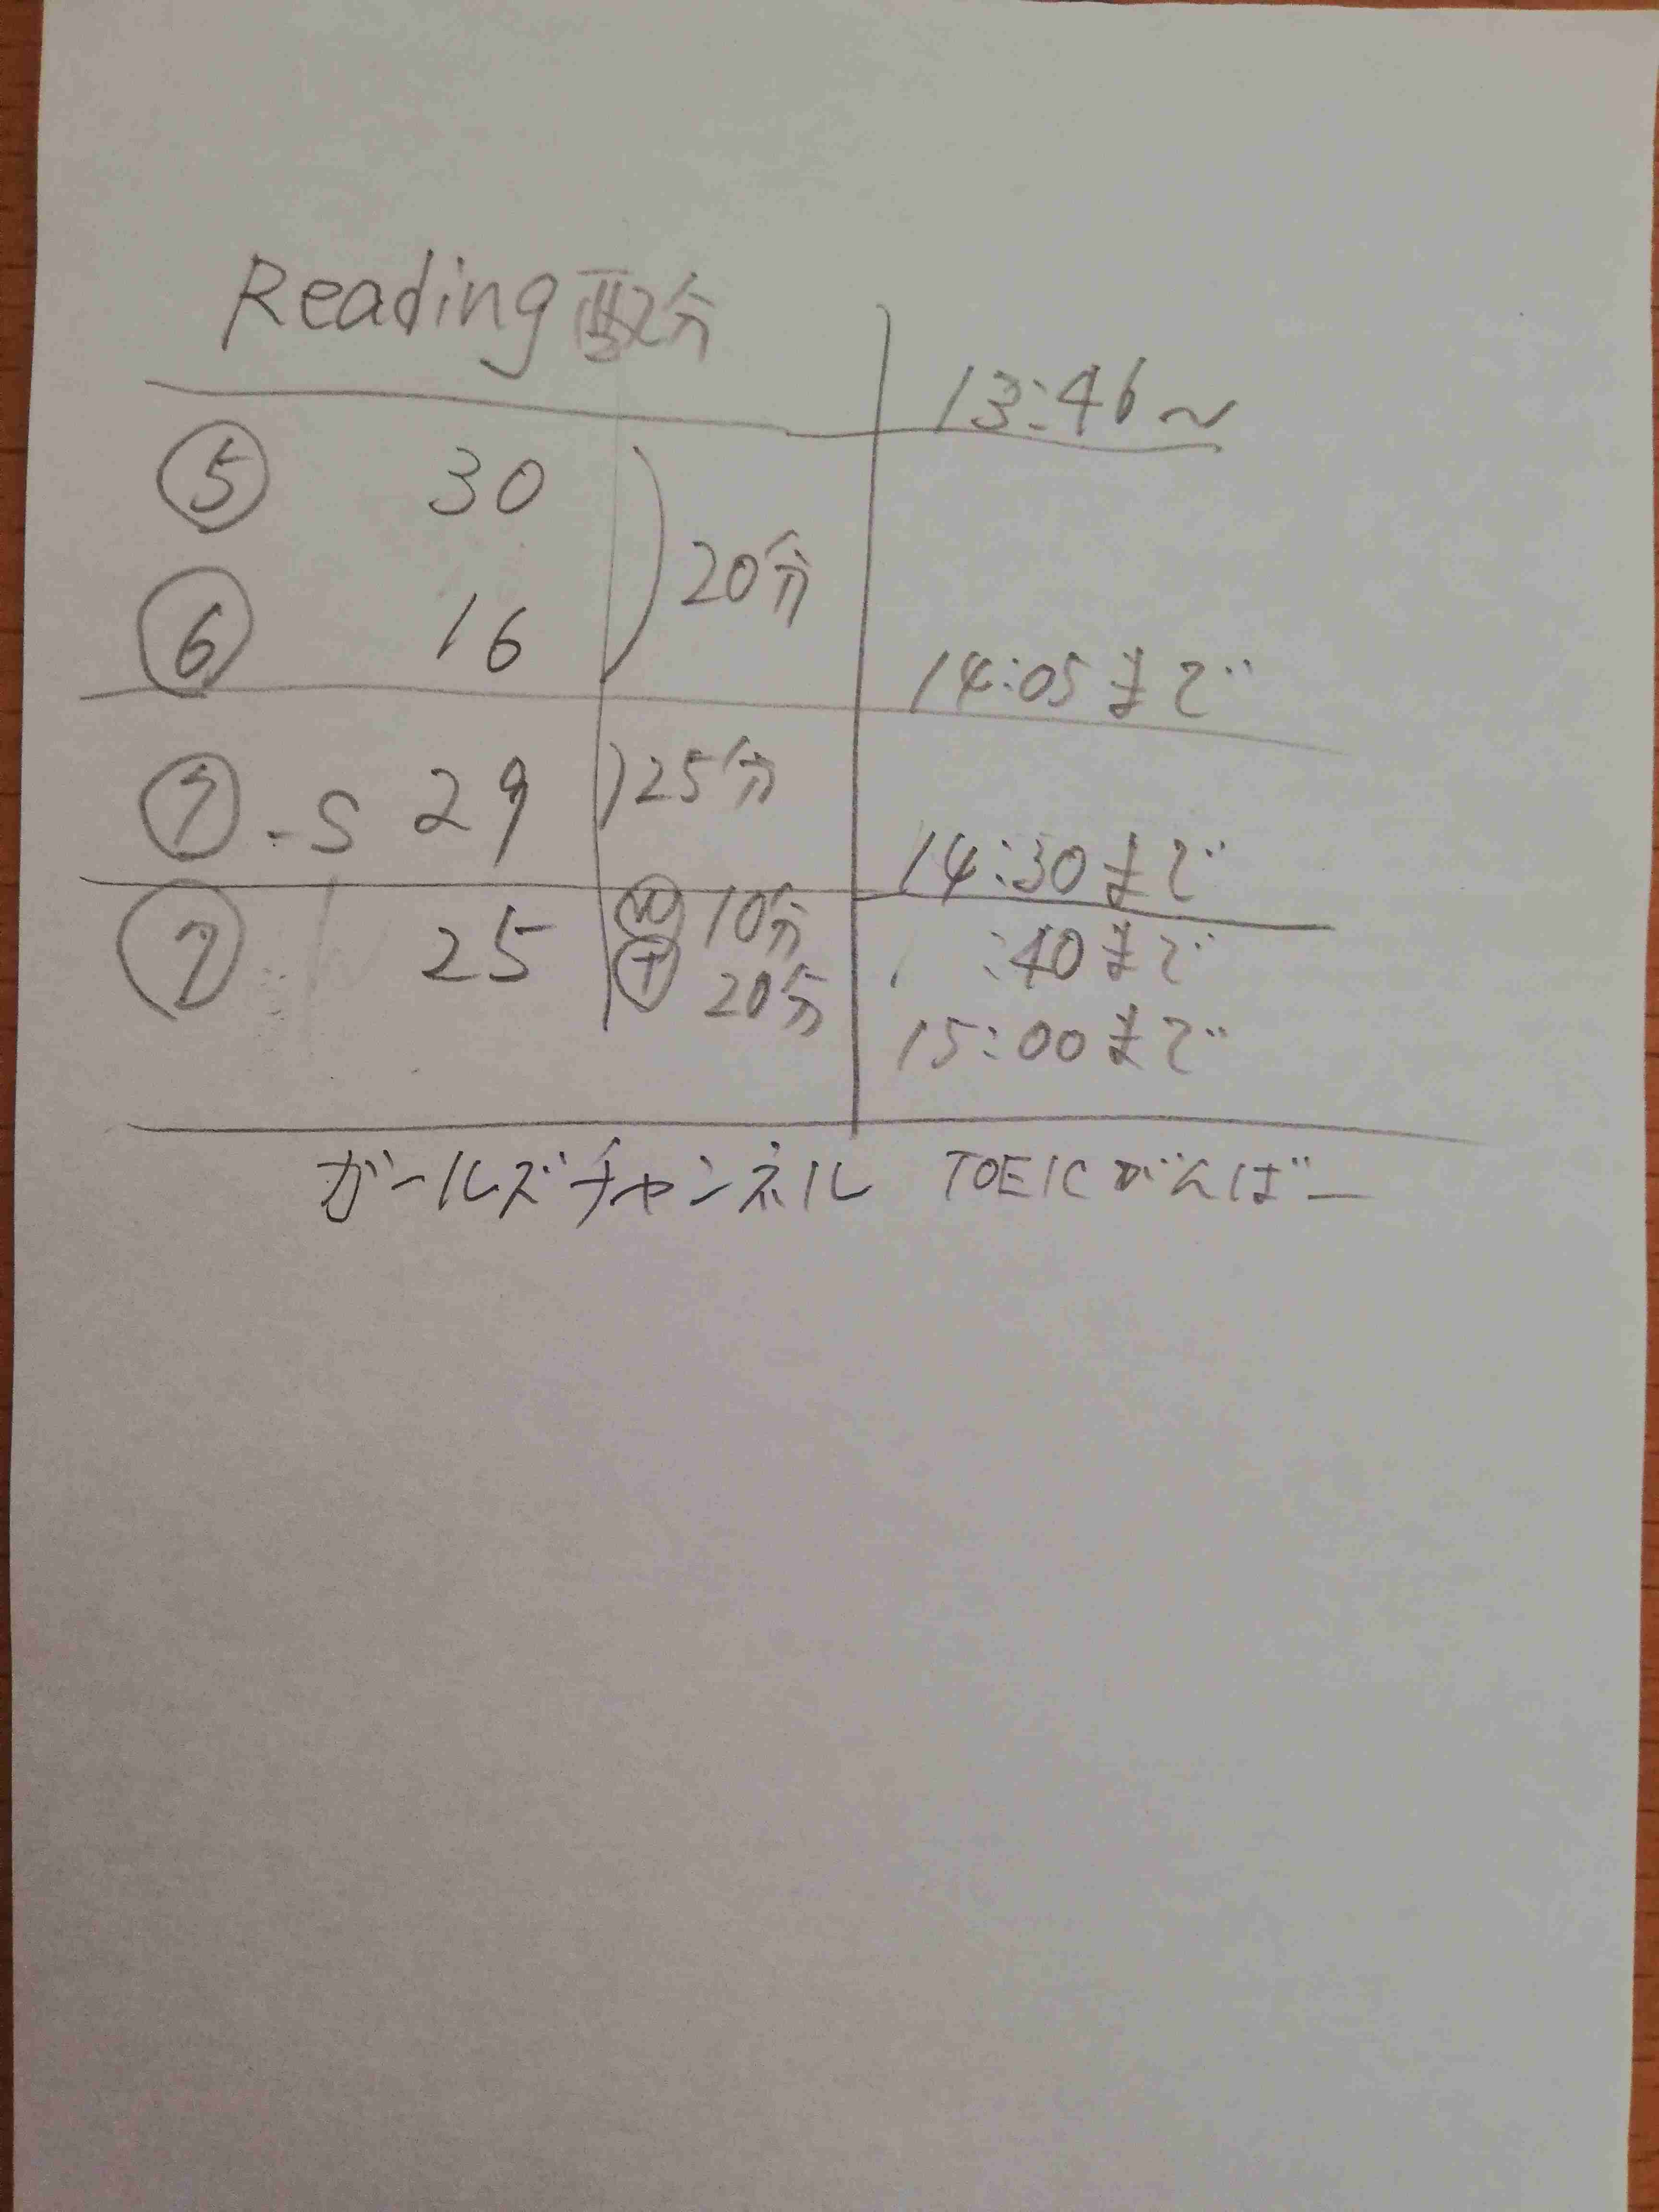 Reading 配分
13:46~
⑤ 30
⑥ 16
20分
14:05まで
⑦-S 29 25分
14:30まで
⑦ 25 Ⓦ 10分
:40まで
Ⓣ 20分
15:00まで
ガールズチャンネル TOEICがんばー